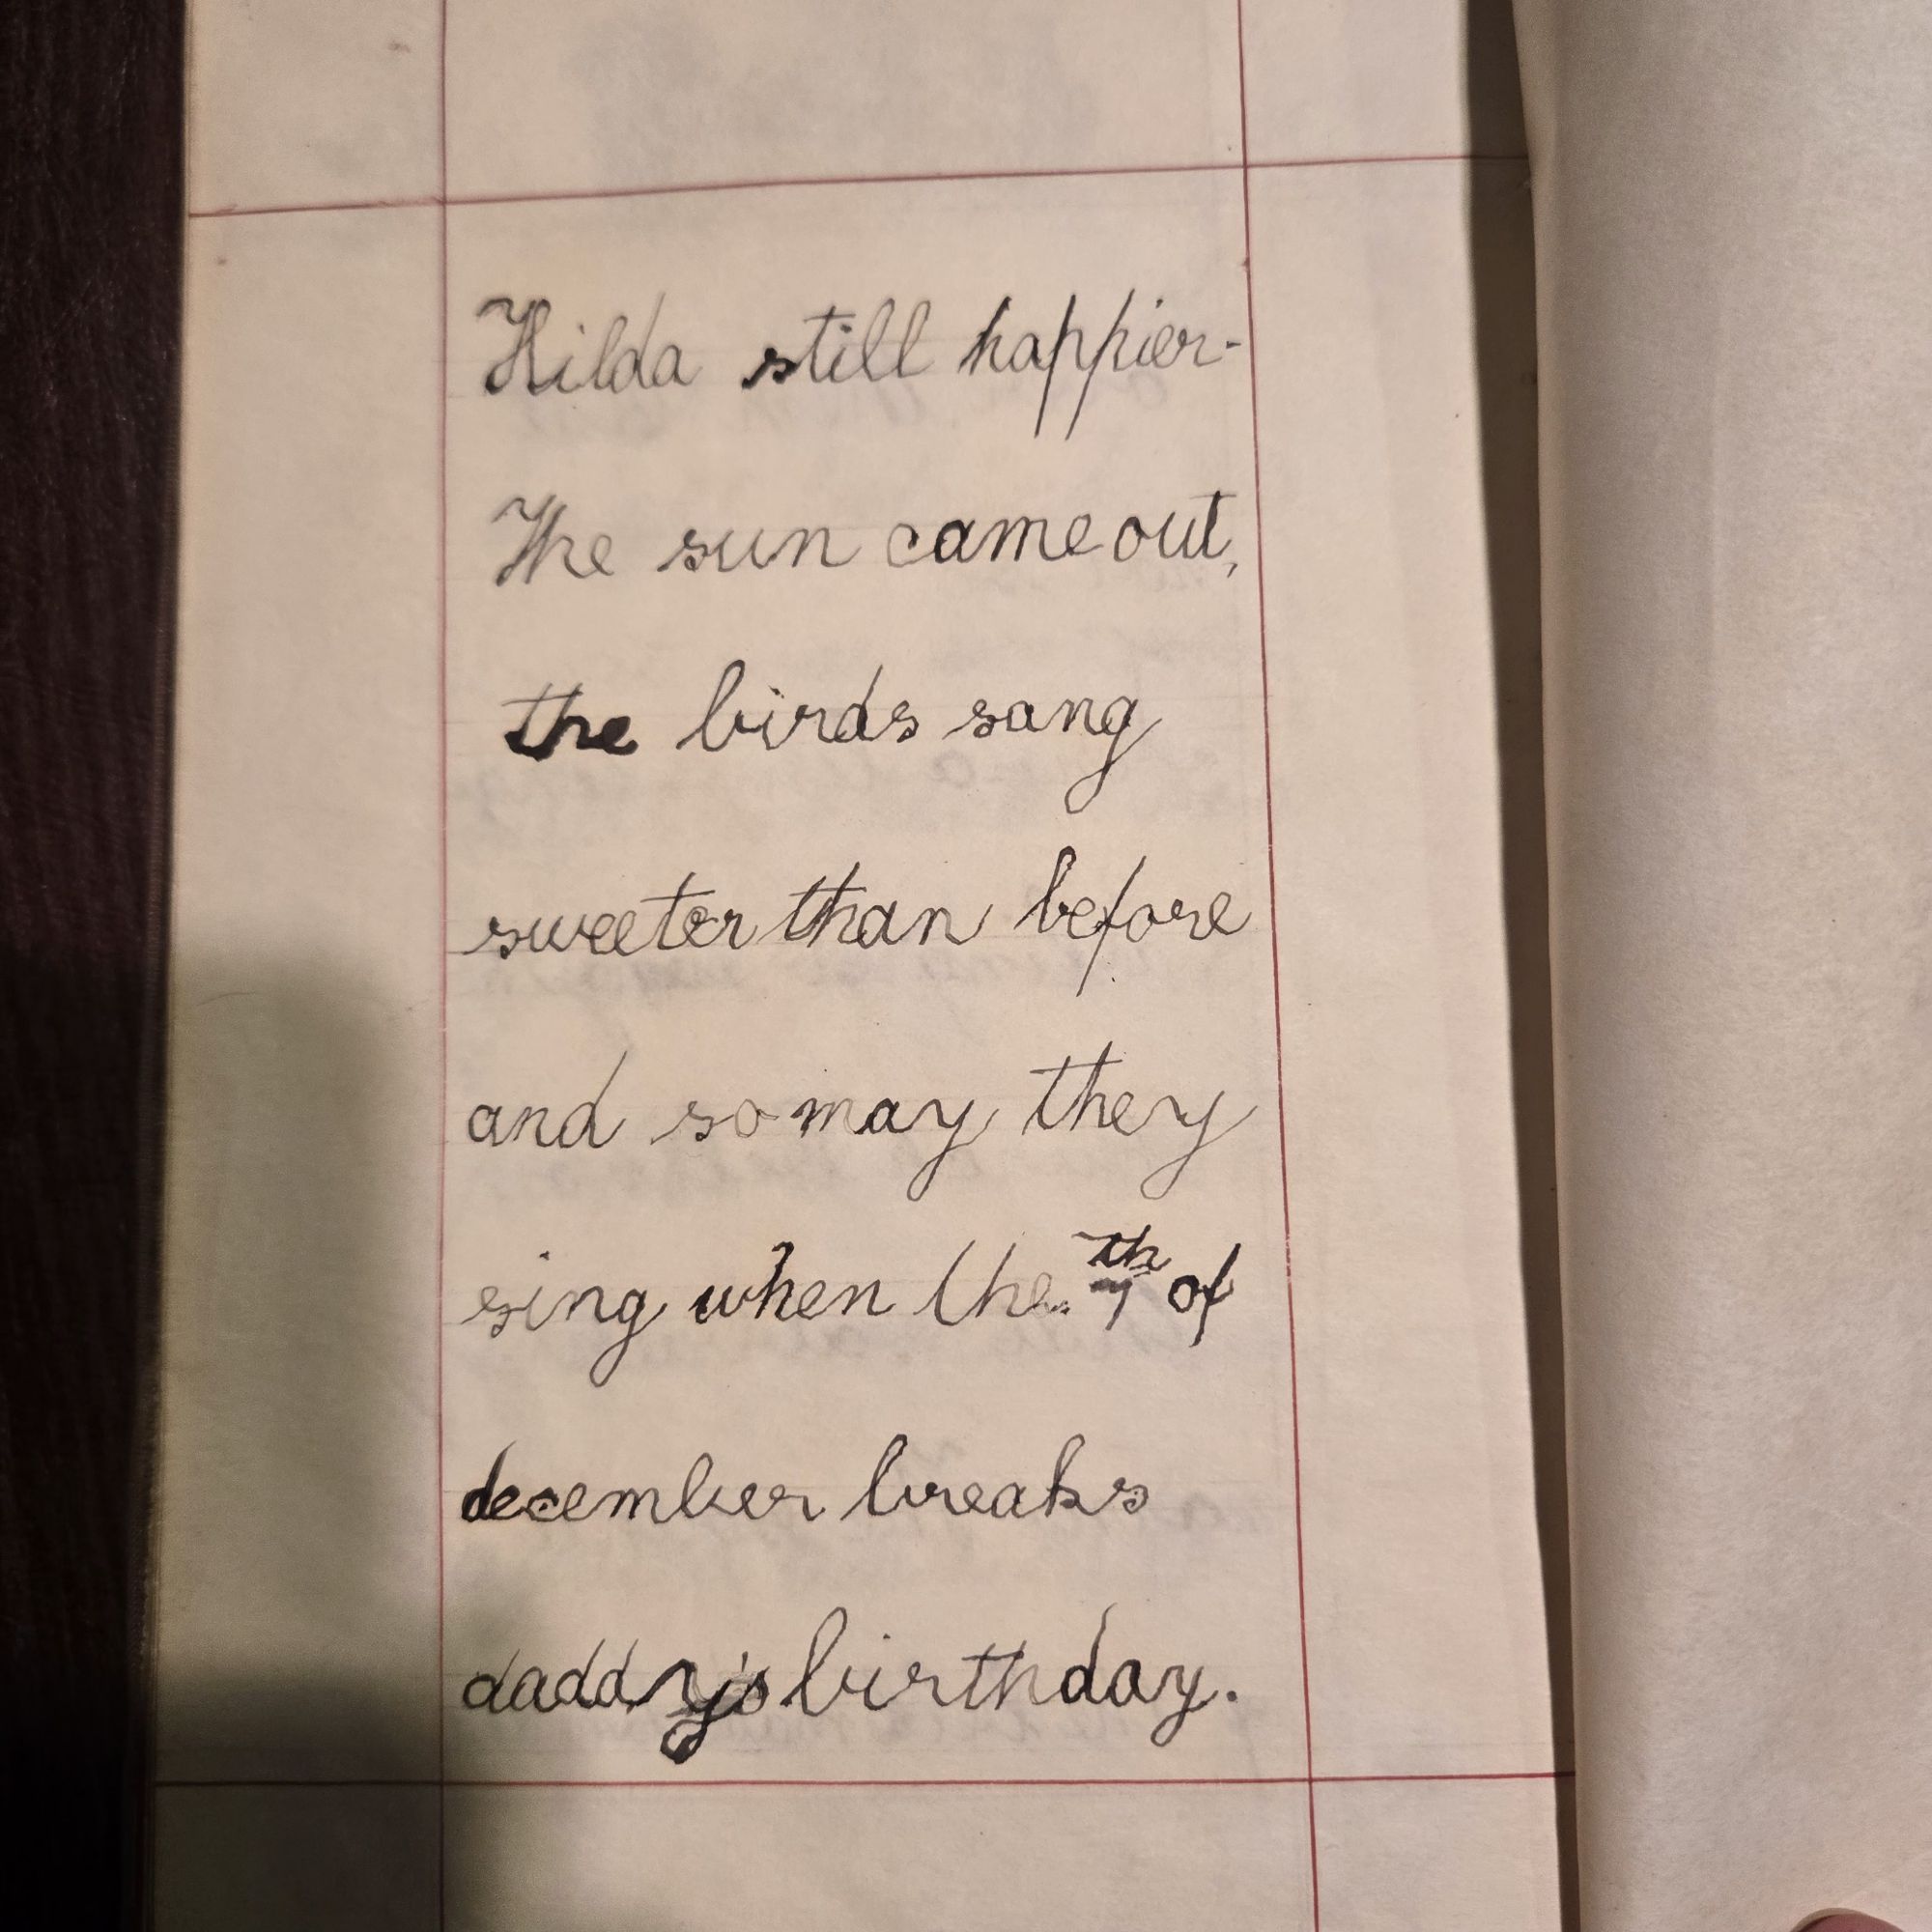 Hilda still happier-
The sun came out,
the birds sang
sweeter than before
and so may they
sing when the 7th of
december breaks
daddy's birthday.